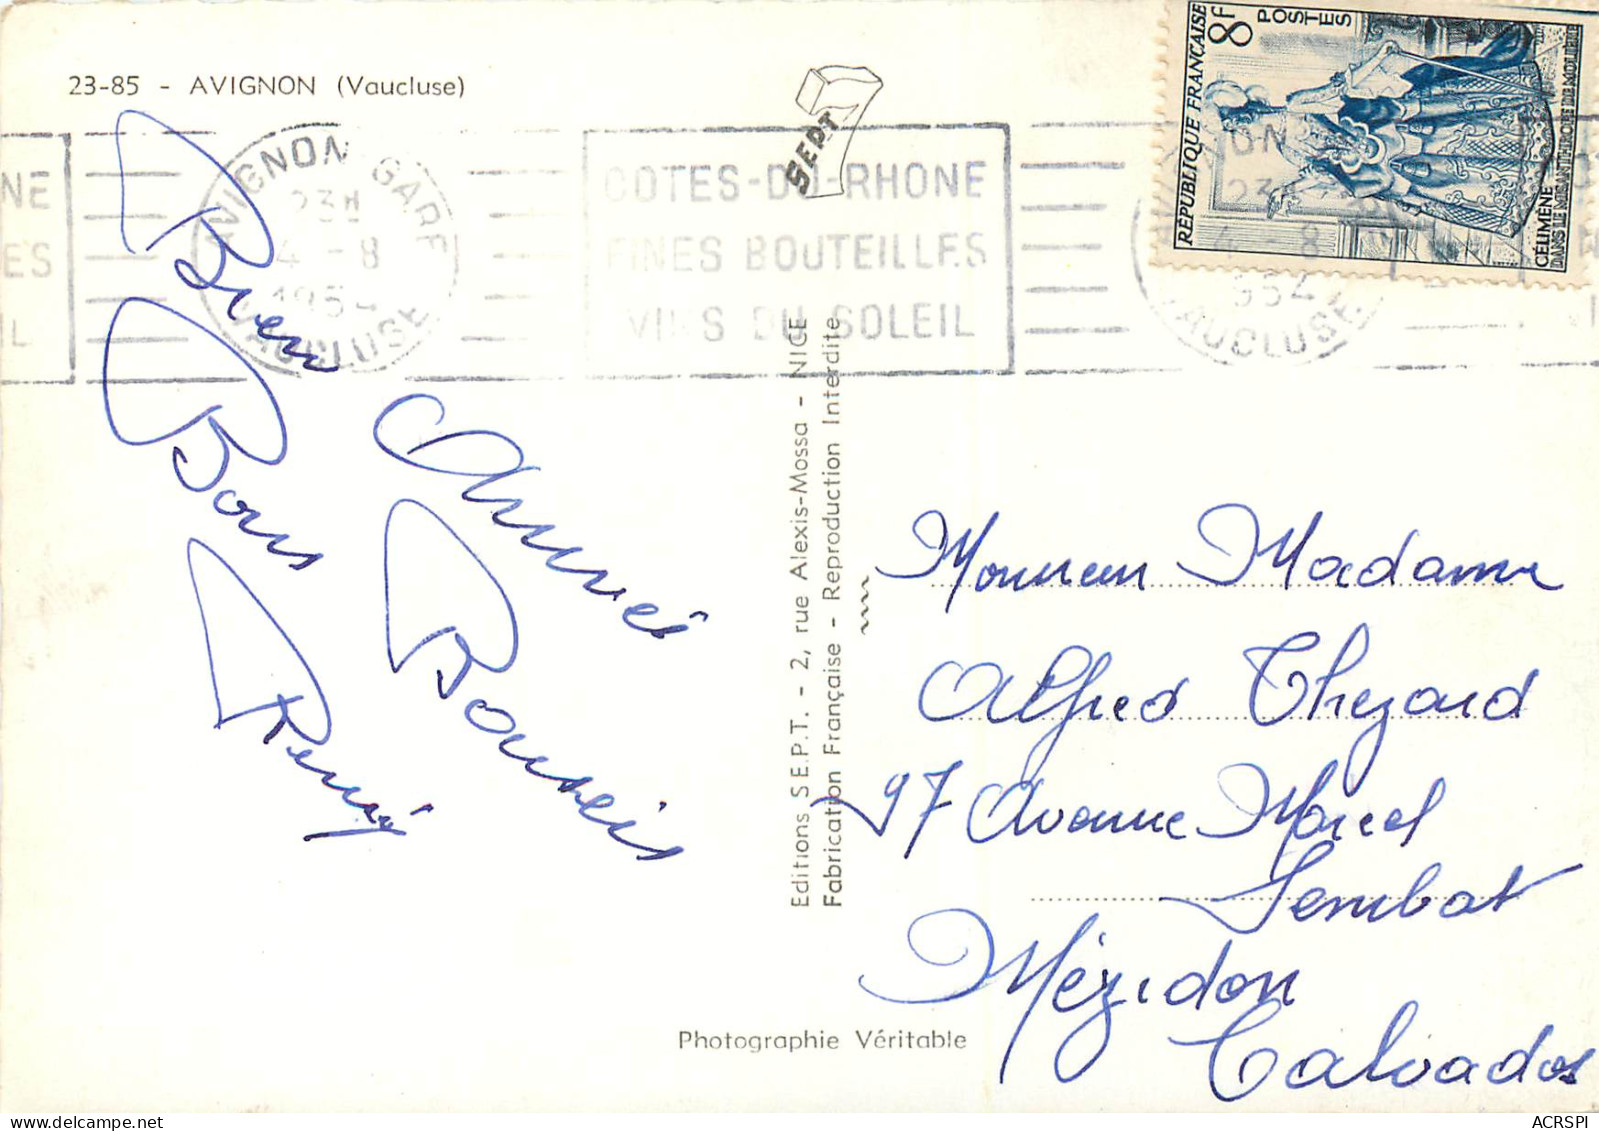 23-85 - AVIGNON (Vaucluse)
Bien Arrivés
Bons Baisers
Rémy
SEPT
AVIGNON GARE
23H
4 - 8
195
VAUCLUSE
COTES-DU-RHONE
FINES BOUTEILLES
VINS DU SOLEIL
NE
ES
L
RÉPUBLIQUE FRANÇAISE
8F
POSTES
CÉLIMÈNE
DANS LE MISANTHROPE DE MOLIÈRE
23H
4 - 8
1954
VAUCLUSE
Editions S.E.P.T. - 2, rue Alexis-Mossa - NICE
Fabrication Française - Reproduction Interdite
Monsieur Madame
Alfred Thezard
97 Avenue Marcel
Sembat
Mézidon
Calvados
Photographie Véritable
ACRSPI